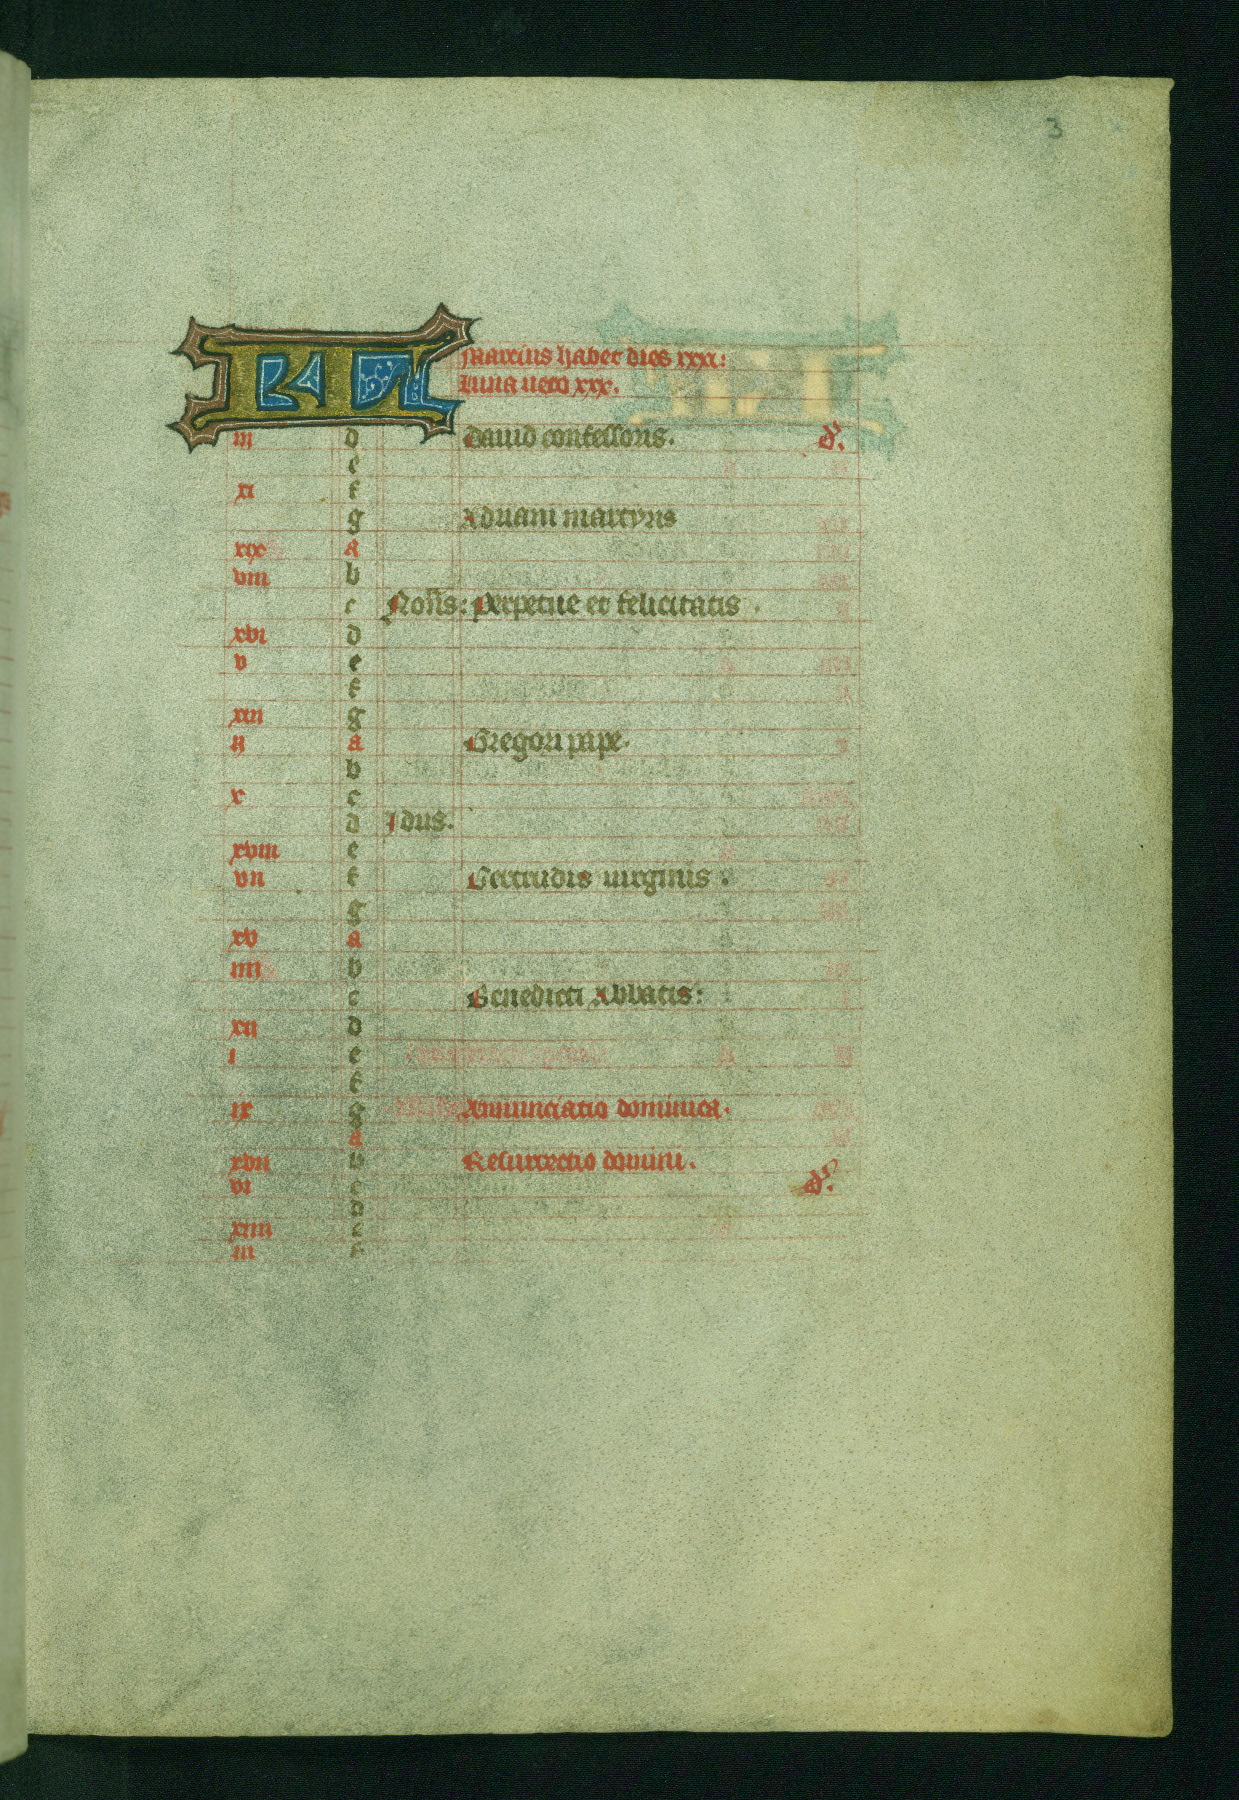 3
KL Marcius habet dies xxxi:
Luna uero xxx.
iii d Dauid confessoris. d'.
e
xi f
g Adriani martyris
xix a
viii b
c Nonis: Perpetue et felicitatis .
xvi d
v e
f
xiii g
ij a Gregori pape.
b
x c
d Idus.
xviii e
vii f Gertrudis uirginis .
g
xv a
iiii b
c Benedicti Abbatis:
xij d
i e
f
ix g Annunciatio dominica.
a
xvii b Resurrectio domini.
vi c d'.
d
xiiii e
iii f